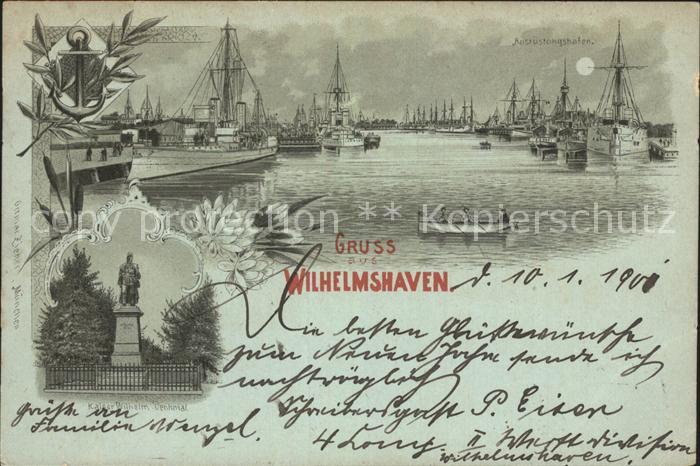 Ausrüstungshafen.
copy protection ** Kopierschutz
GRUSS
aus
WILHELMSHAVEN.
d. 10. 1. 1901
Die besten Glückwünsche
zum Neuen Jahre sende ich
nachträglich
Schreibersgast P. Eisen
4 Comp. II Werft Division
Wilhelmshaven.
Kaiser Wilhelm Denkmal
Grüße an
Familie Wenzel.
München